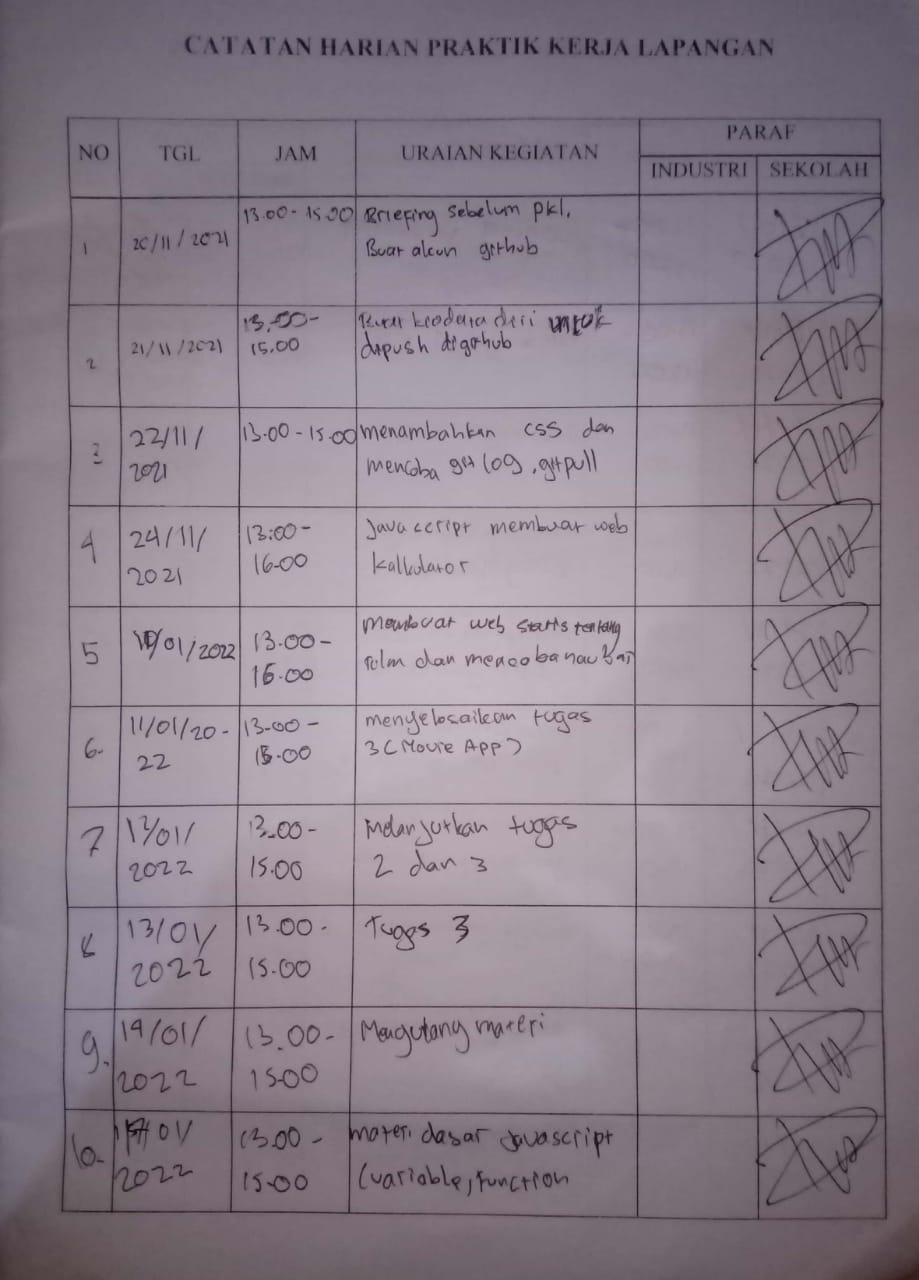 CATATAN HARIAN PRAKTIK KERJA LAPANGAN
NO TGL JAM URAIAN KEGIATAN PARAF
INDUSTRI SEKOLAH
1 20/11/2021 13.00 - 15.00 Briefing sebelum pkl.
Buat akun github
2 21/11/2021 13.00 - 15.00 diri untuk
dipush digithub
3 22/11/2021 13.00 - 15.00 menambahkan css dan
mencoba git log, git pull
4 24/11/2021 13:00 - 16.00 Javascript membuat web
kalkulator
5 10/01/2022 13.00 - 16.00 Membuat web statis tentang
film dan mencoba navbar
6. 11/01/2022 13.00 - 15.00 menyelesaikan tugas
3 (Movie App)
7 12/01/2022 13.00 - 15.00 Melanjutkan tugas
2 dan 3
8 13/01/2022 13.00 - 15.00 Tugas 3
9. 14/01/2022 13.00 - 15.00 Mengulang materi
10. /01/2022 13.00 - 15.00 materi dasar Javascript
(variable, function